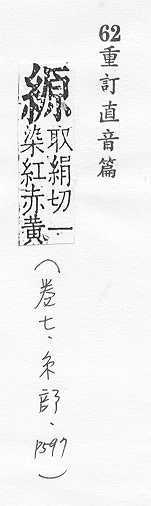 62重訂直音篇
縓 取絹切一
染紅赤黄
(卷七·糸部·P597)